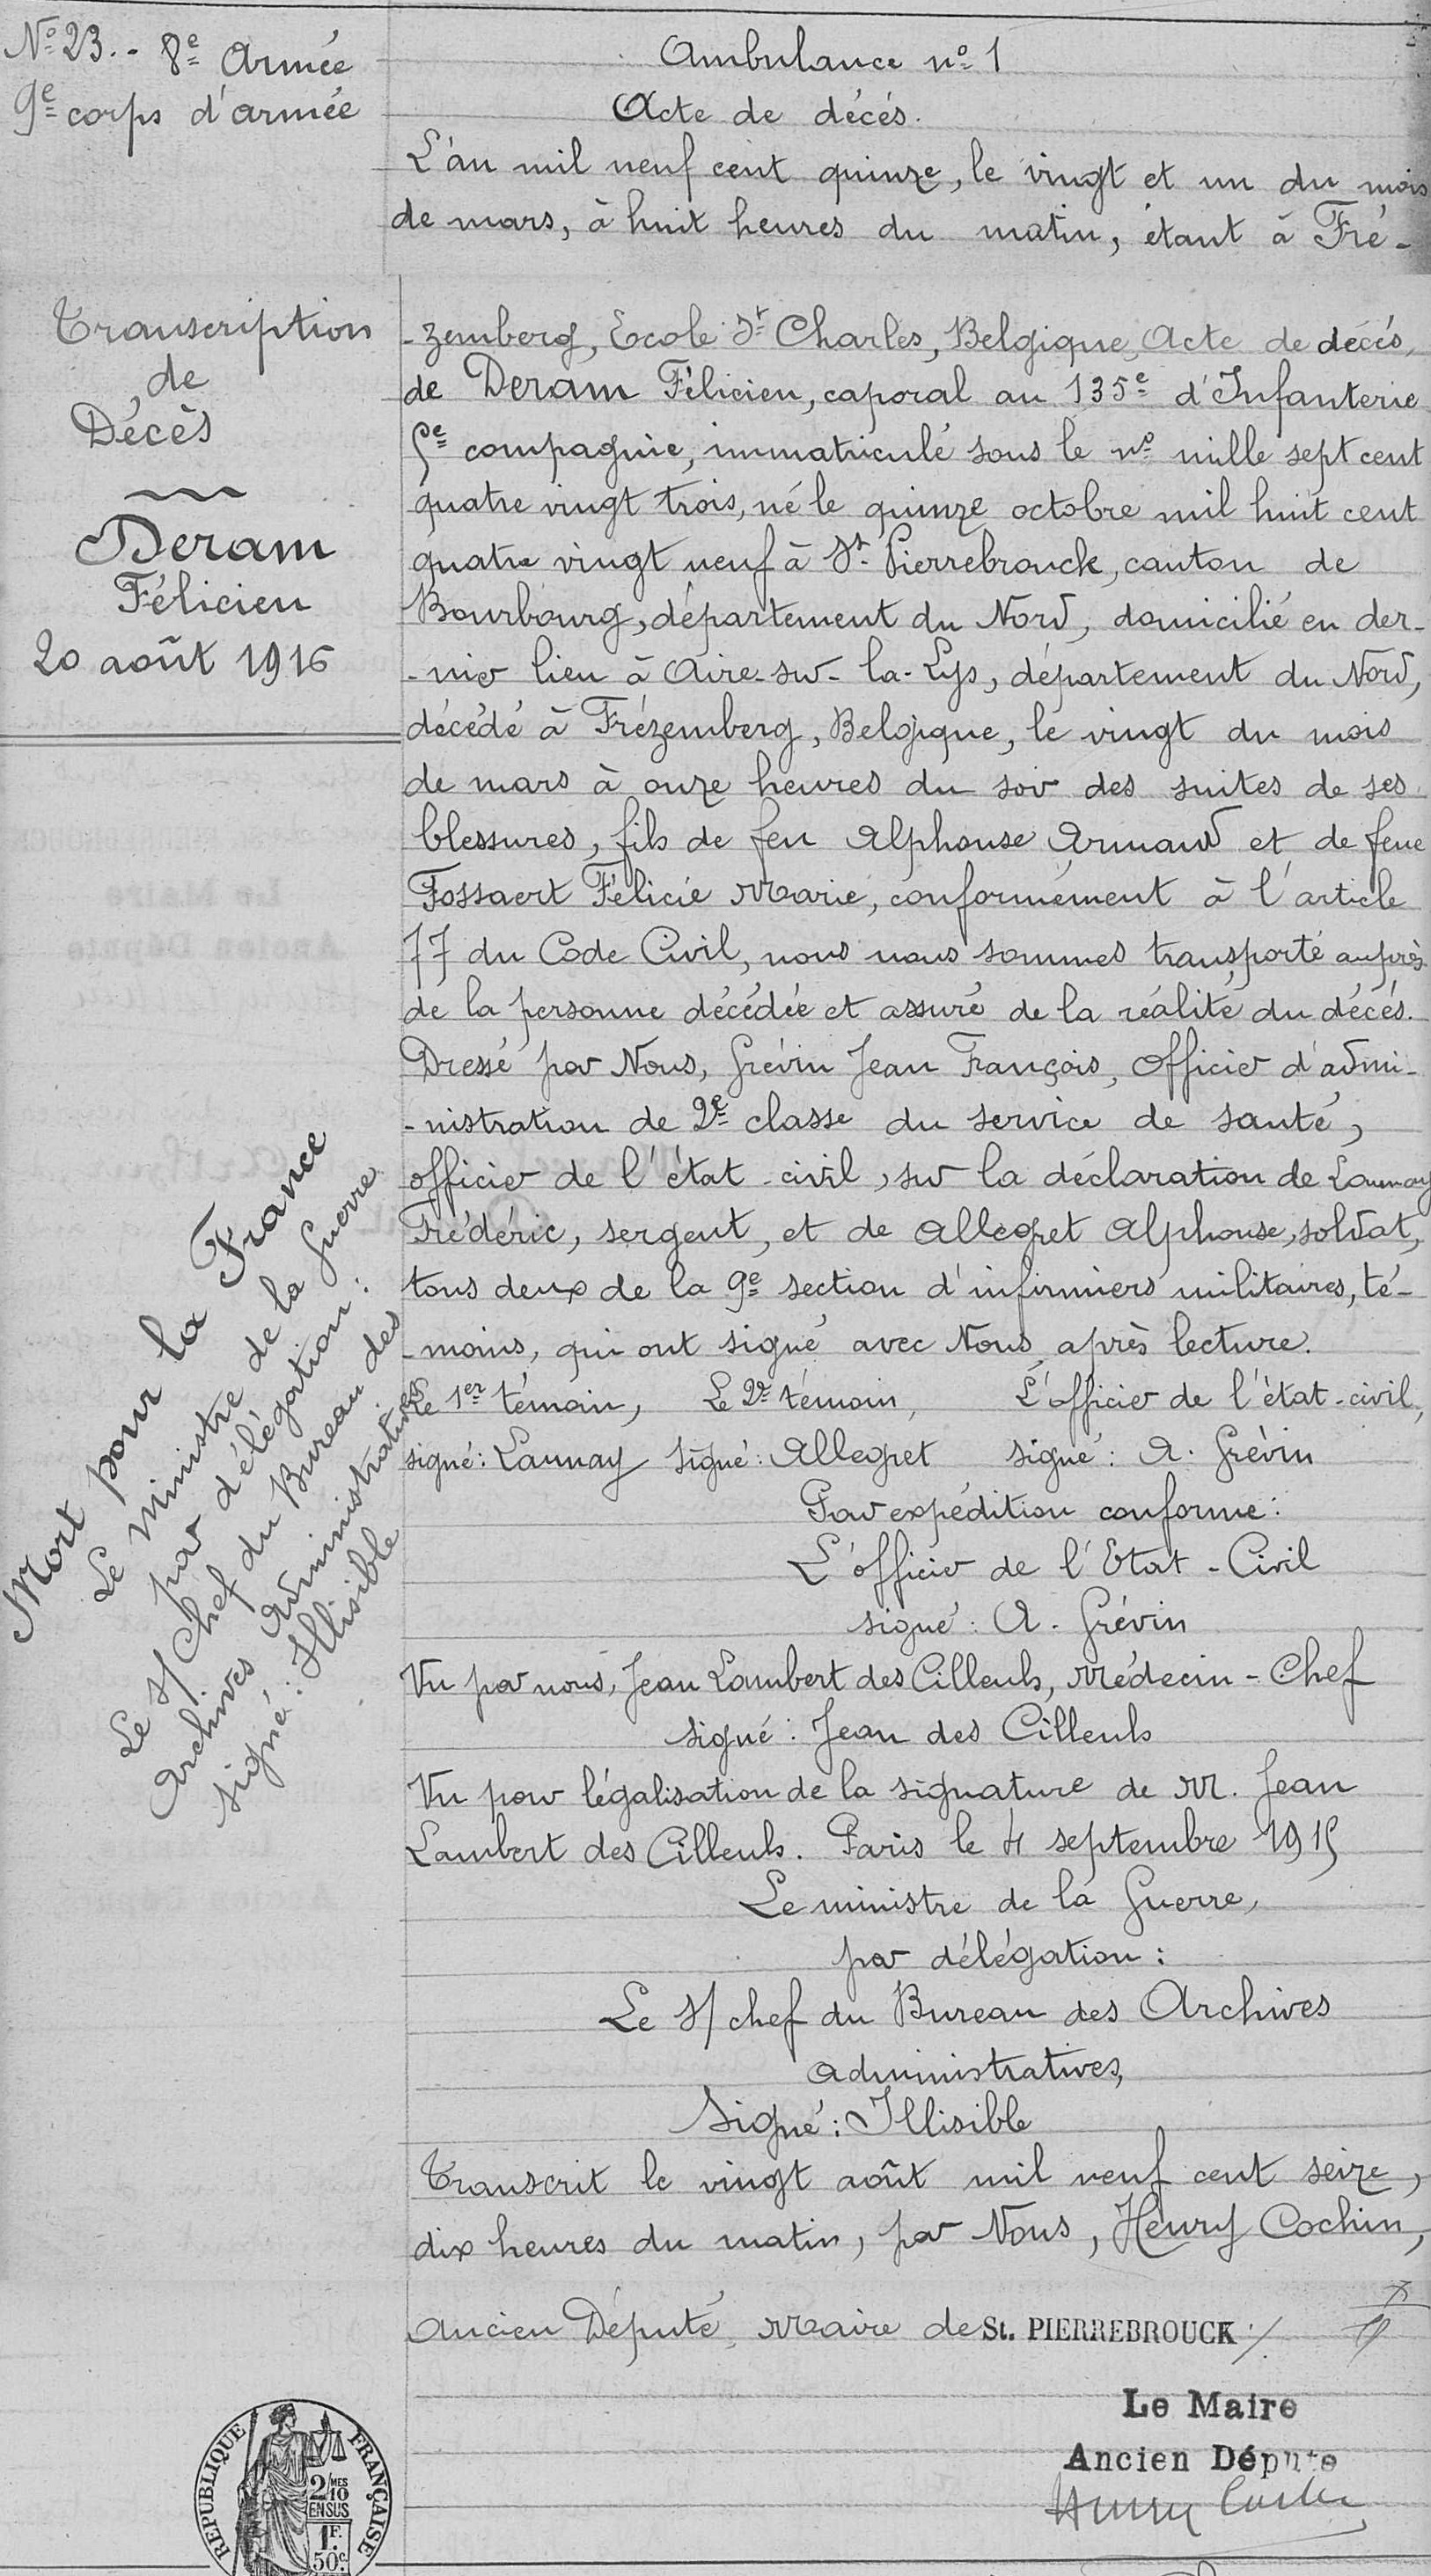 N° 23. - 8e Armée
9e corps d'armée
Ambulance n° 1
Acte de décés.
L'an mil neuf cent quinze, le vingt et un du mois
de mars, à huit heures du matin, étant à Fré-
Transcription
de
Décès
Deram
Félicien
20 août 1916
-zemberg, Ecole St Charles, Belgique, Acte de décés,
de Deram Félicien, caporal au 135e d'Infanterie
5e compagnie, immatriculé sous le n° mille sept cent
quatre vingt trois, né le quinze octobre mil huit cent
quatre vingt neuf à St Pierrebrouck, canton de
Bourbourg, département du Nord, domicilié en der-
-nier lieu à Aire-sur-la-Lys, département du Nord,
décédé à Frézemberg, Belgique, le vingt du mois
de mars à onze heures du soir des suites de ses
blessures, fils de feu Alphonse Armand et de feue
Fossaert Félicie Marie, conformément à l'article
77 du Code Civil, nous nous sommes transporté auprès
de la personne décédée et assuré de la réalité du décés.
Dressé par Nous, Grévin Jean François, Officier d'admi-
-nistration de 2e classe du service de santé,
officier de l'état-civil, sur la déclaration de Launay
Frédéric, sergent, et de Allegret Alphonse, soldat,
tous deux de la 9e section d'infirmiers militaires, té-
-moins, qui ont signé avec Nous après lecture.
Le 1er témoin, Le 2e témoin, L'officier de l'état-civil,
signé: Launay signé: Allegret signé: A. Grévin
Pour expédition conforme:
L'officier de l'Etat-Civil
signé: A. Grévin
Vu par nous, Jean Lambert des Cilleuls, Médecin-Chef
signé: Jean des Cilleuls
Vu pour légalisation de la signature de M. Jean
Lambert des Cilleuls. Paris le 4 septembre 1915
Le ministre de la Guerre,
par délégation:
Le s/chef du Bureau des Archives
administratives,
Signé: Illisible
Transcrit le vingt août mil neuf cent seize,
dix heures du matin, par Nous, Henry Cochin,
ancien Député, Maire de St. PIERREBROUCK ./.
Mort pour la France
Le Ministre de la Guerre
par délégation:
Le s/Chef du Bureau des
Archives Administratives
signé: Illisible
Le Maire
Ancien Député
Henry Cochin
RÉPUBLIQUE FRANÇAISE
2/10 MES
EN SUS
1F.
50c.